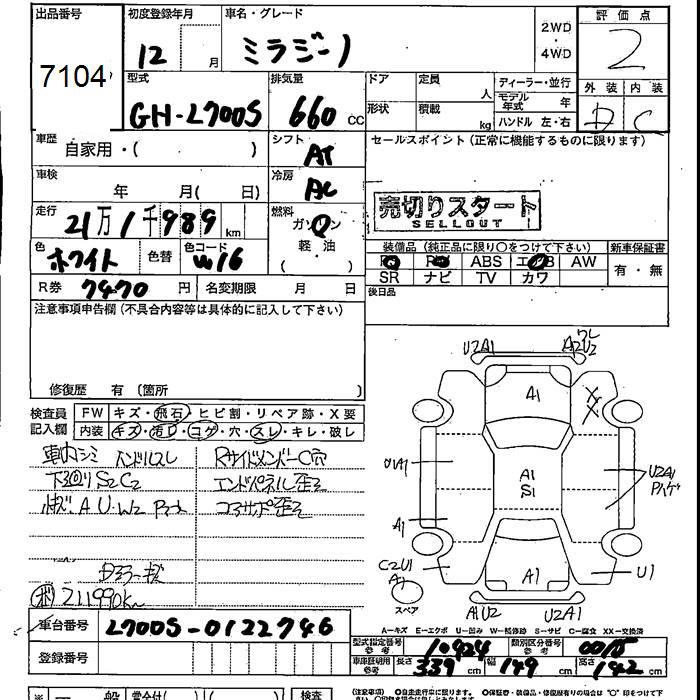 出品番号
7104
初度登録年月
12 月
車名・グレード
ミラジーノ
2WD
・
4WD
評価点
2
外装 内装
D C
型式
GH-L700S
排気量
660 CC
ドア
定員
人
形状
積載
kg
ディーラー・並行
モデル年式 年
ハンドル 左・右
車歴
自家用・( )
シフト
AT
セールスポイント(正常に機能するものに限ります)
車検
年 月( 日)
冷房
AC
売切りスタート
SELLOUT
走行
21万1千989 km
燃料
ガソリン
軽・油
( )
色
ホワイト
色替
色コード
W16
装備品(純正品に限り○をつけて下さい)
新車保証書
ABS AW
SR ナビ TV カワ
有・無
R券
7470 円
名変期限 月 日
後日品
注意事項申告欄(不具合内容等は具体的に記入して下さい)
修復歴 有 (箇所 )
検査員
記入欄
FW キズ・飛石・ヒビ割・リペア跡・X要
内装 キズ・汚れ・コゲ・穴・スレ・キレ・破レ
車内シミ ハンドルスレ
下廻り S2C2
RサイドメンバーC穴
エンドパネル歪ミ
コアサポ歪ミ
Dミラーキズ
211990K
U2A1
A2U2
A1
A1
S1
U1A1
A1
U2A1
C2U1
A1
A1
U1
A1U2
U2A1
スペア
A-キズ E-エクボ U-凹み W-補修跡 S-サビ C-腐食 XX-交換済
車台番号
L700S-0122746
登録番号
型式指定番号
参考
10424
類別区分番号
参考
0015
車庫証明用
参考
長さ 339 cm
幅 149 cm
高さ 142 cm
(注意事項)
検査